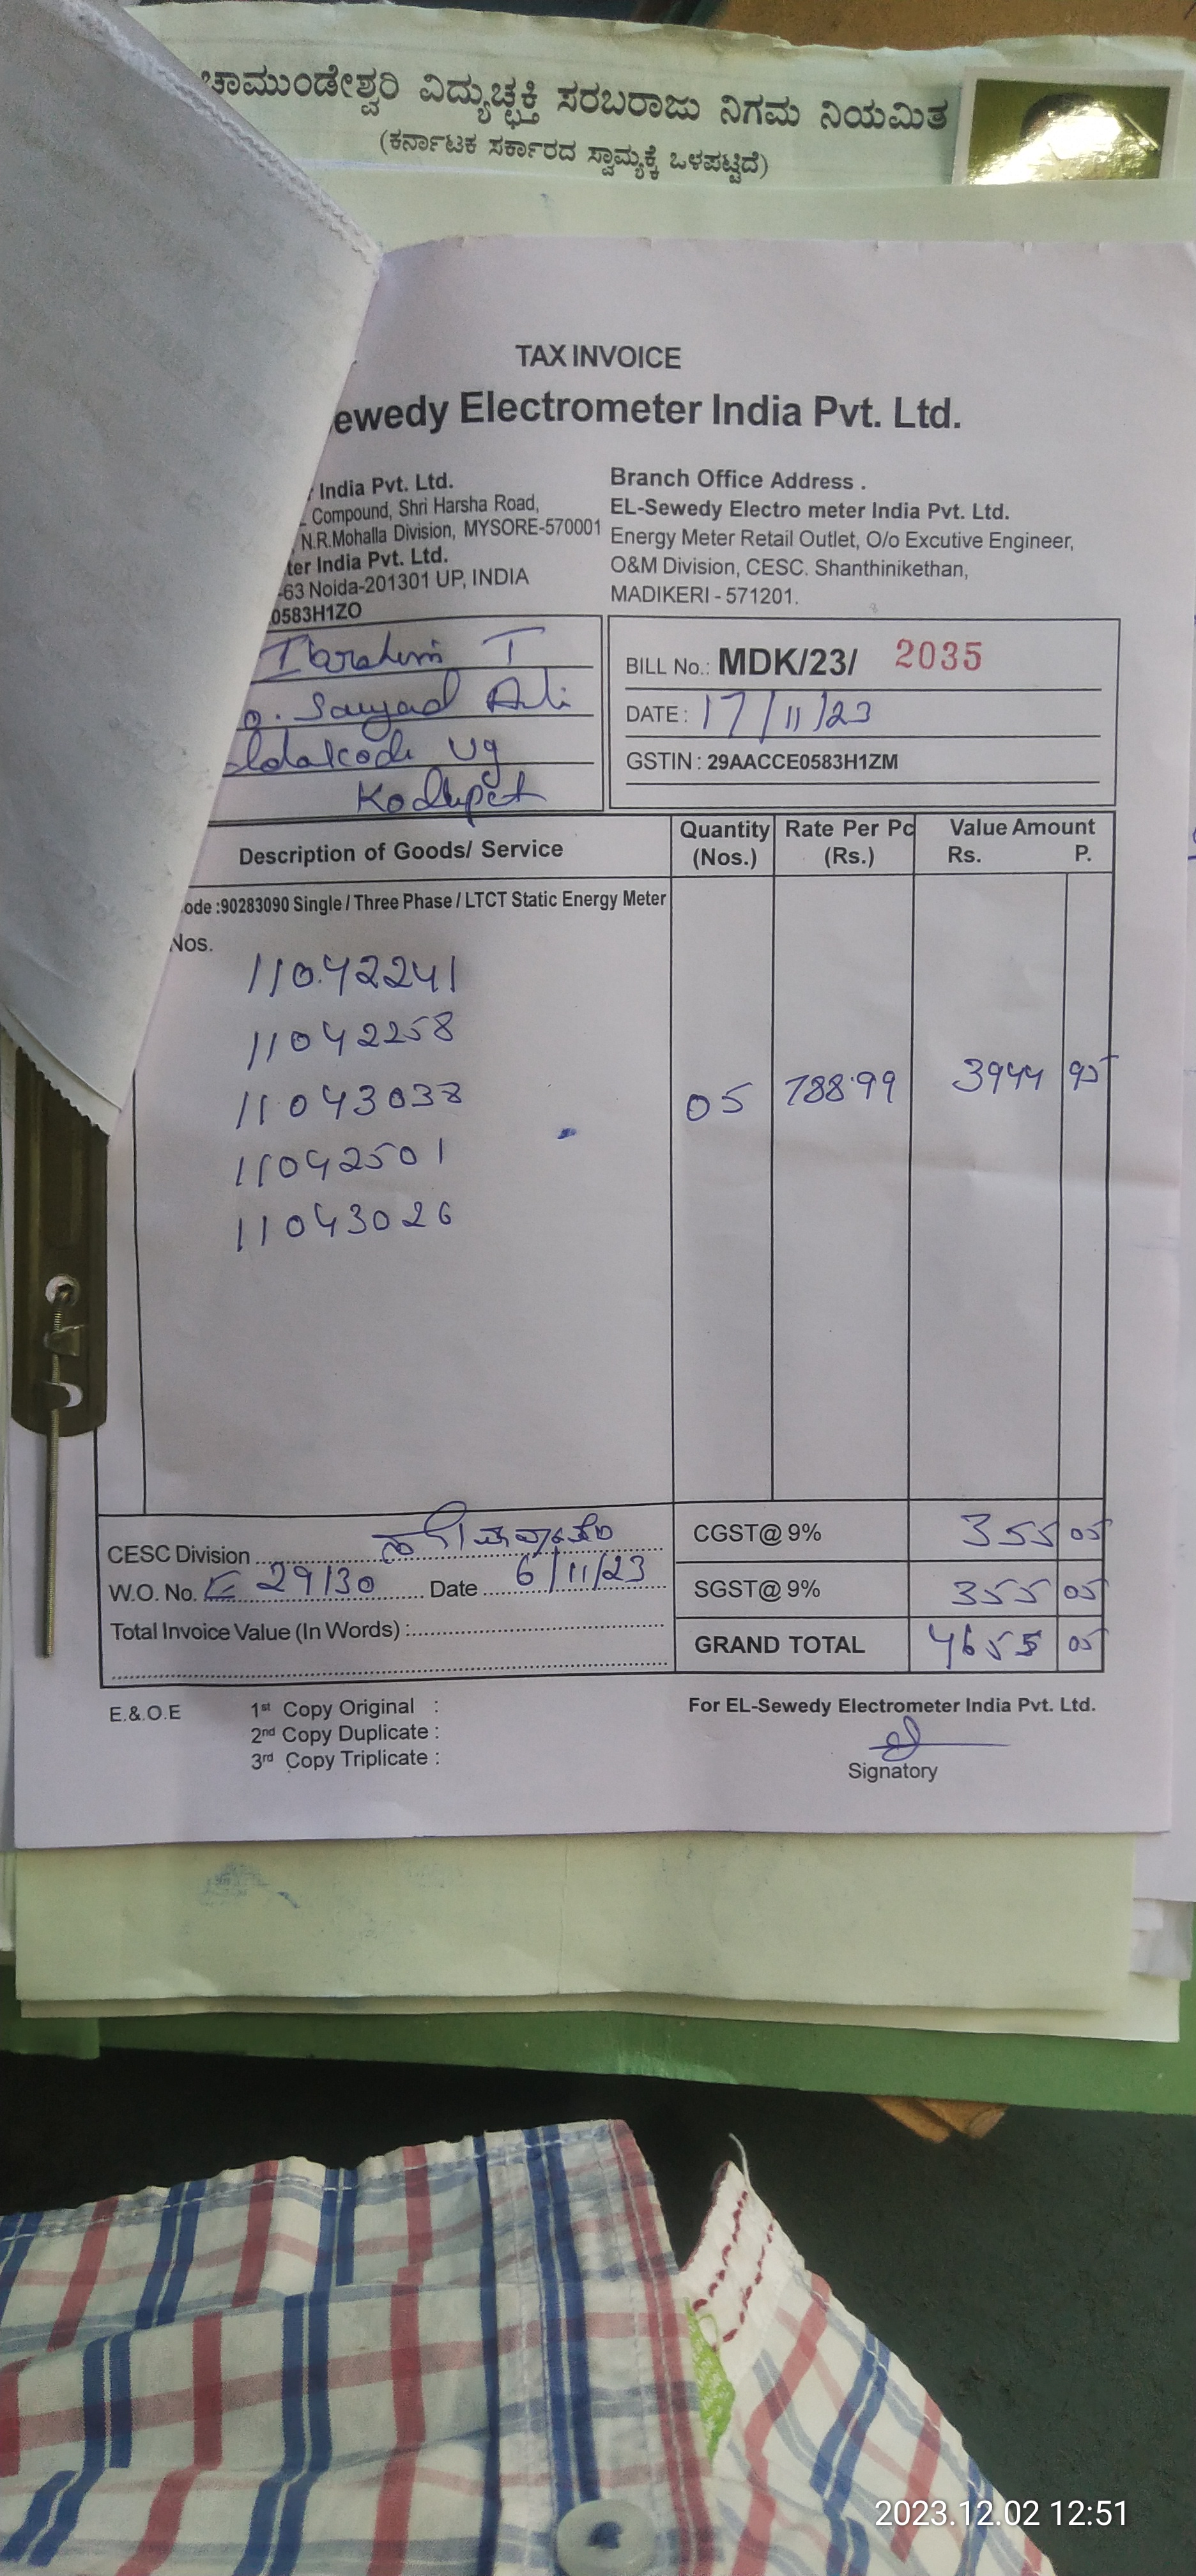 ಚಾಮುಂಡೇಶ್ವರಿ ವಿದ್ಯುಚ್ಛಕ್ತಿ ಸರಬರಾಜು ನಿಗಮ ನಿಯಮಿತ
(ಕರ್ನಾಟಕ ಸರ್ಕಾರದ ಸ್ವಾಮ್ಯಕ್ಕೆ ಒಳಪಟ್ಟಿದೆ)
TAX INVOICE
ewedy Electrometer India Pvt. Ltd.
India Pvt. Ltd.
Compound, Shri Harsha Road,
N.R.Mohalla Division, MYSORE-570001
ter India Pvt. Ltd.
-63 Noida-201301 UP, INDIA
0583H1ZO
Branch Office Address .
EL-Sewedy Electro meter India Pvt. Ltd.
Energy Meter Retail Outlet, O/o Excutive Engineer,
O&M Division, CESC. Shanthinikethan,
MADIKERI - 571201.
Ibrahim T
Sayyad Ali
Kodlipet
BILL No.: MDK/23/ 2035
DATE : 17/11/23
GSTIN : 29AACCE0583H1ZM
Description of Goods/ Service Quantity (Nos.) Rate Per Pc (Rs.) Value Amount Rs. P.
ode :90283090 Single / Three Phase / LTCT Static Energy Meter
Nos.
11042241
11042258
11043038
11042501
11043026
05 788.99 3944 95
CESC Division
W.O. No. 29130 Date 6/11/23
Total Invoice Value (In Words) :
CGST@ 9% 355 05
SGST@ 9% 355 05
GRAND TOTAL 4655 05
E.&.O.E
1st Copy Original :
2nd Copy Duplicate :
3rd Copy Triplicate :
For EL-Sewedy Electrometer India Pvt. Ltd.
Signatory
2023.12.02 12:51